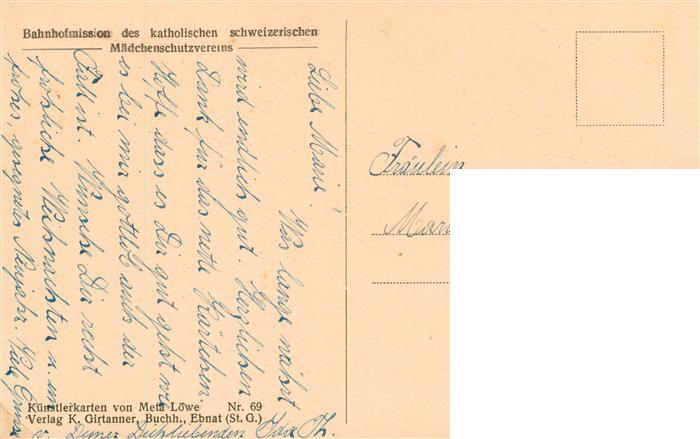 Bahnhofmission des katholischen schweizerischen
Mädchenschutzvereins
Liebe Marie!
Was lange währt
wird endlich gut. Herzlichen
Dank für das nette Kärtchen.
Hoffe dass es Dir gut geht was
es bei mir gottlob auch der
Fall ist. Wünsche Dir recht
fröhliche Weihnachten u. ein
frohes, gesegnetes Neujahr. Viele Grüsse
v. Deiner Dichliebenden Ida Th.
Künstlerkarten von Meta Löwe Nr. 69
Verlag K. Girtanner, Buchh., Ebnat (St. G.)
Fräulein